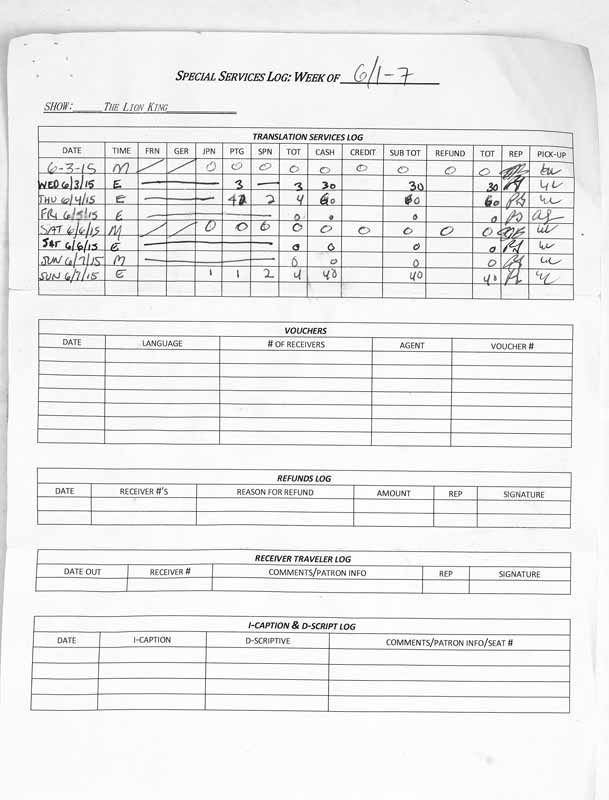 SPECIAL SERVICES LOG: WEEK OF 6/1-7
SHOW: THE LION KING
TRANSLATION SERVICES LOG
DATE TIME FRN GER JPN PTG SPN TOT CASH CREDIT SUB TOT REFUND TOT REP PICK-UP
6-3-15 M 0 0 0 0 0 0 0 0 0
WED 6/3/15 E 3 3 30 30 30
THU 6/4/15 E 2 4 60 60 60
FRI 6/5/15 E 0 0 0 0
SAT 6/6/15 M 0 0 0 0 0 0 0 0 0
SAT 6/6/15 E 0 0 0 0
SUN 6/7/15 M 0 0 0 0
SUN 6/7/15 E 1 1 2 4 40 40 40
VOUCHERS
DATE LANGUAGE # OF RECEIVERS AGENT VOUCHER #
REFUNDS LOG
DATE RECEIVER #'S REASON FOR REFUND AMOUNT REP SIGNATURE
RECEIVER TRAVELER LOG
DATE OUT RECEIVER # COMMENTS/PATRON INFO REP SIGNATURE
I-CAPTION & D-SCRIPT LOG
DATE I-CAPTION D-SCRIPTIVE COMMENTS/PATRON INFO/SEAT #